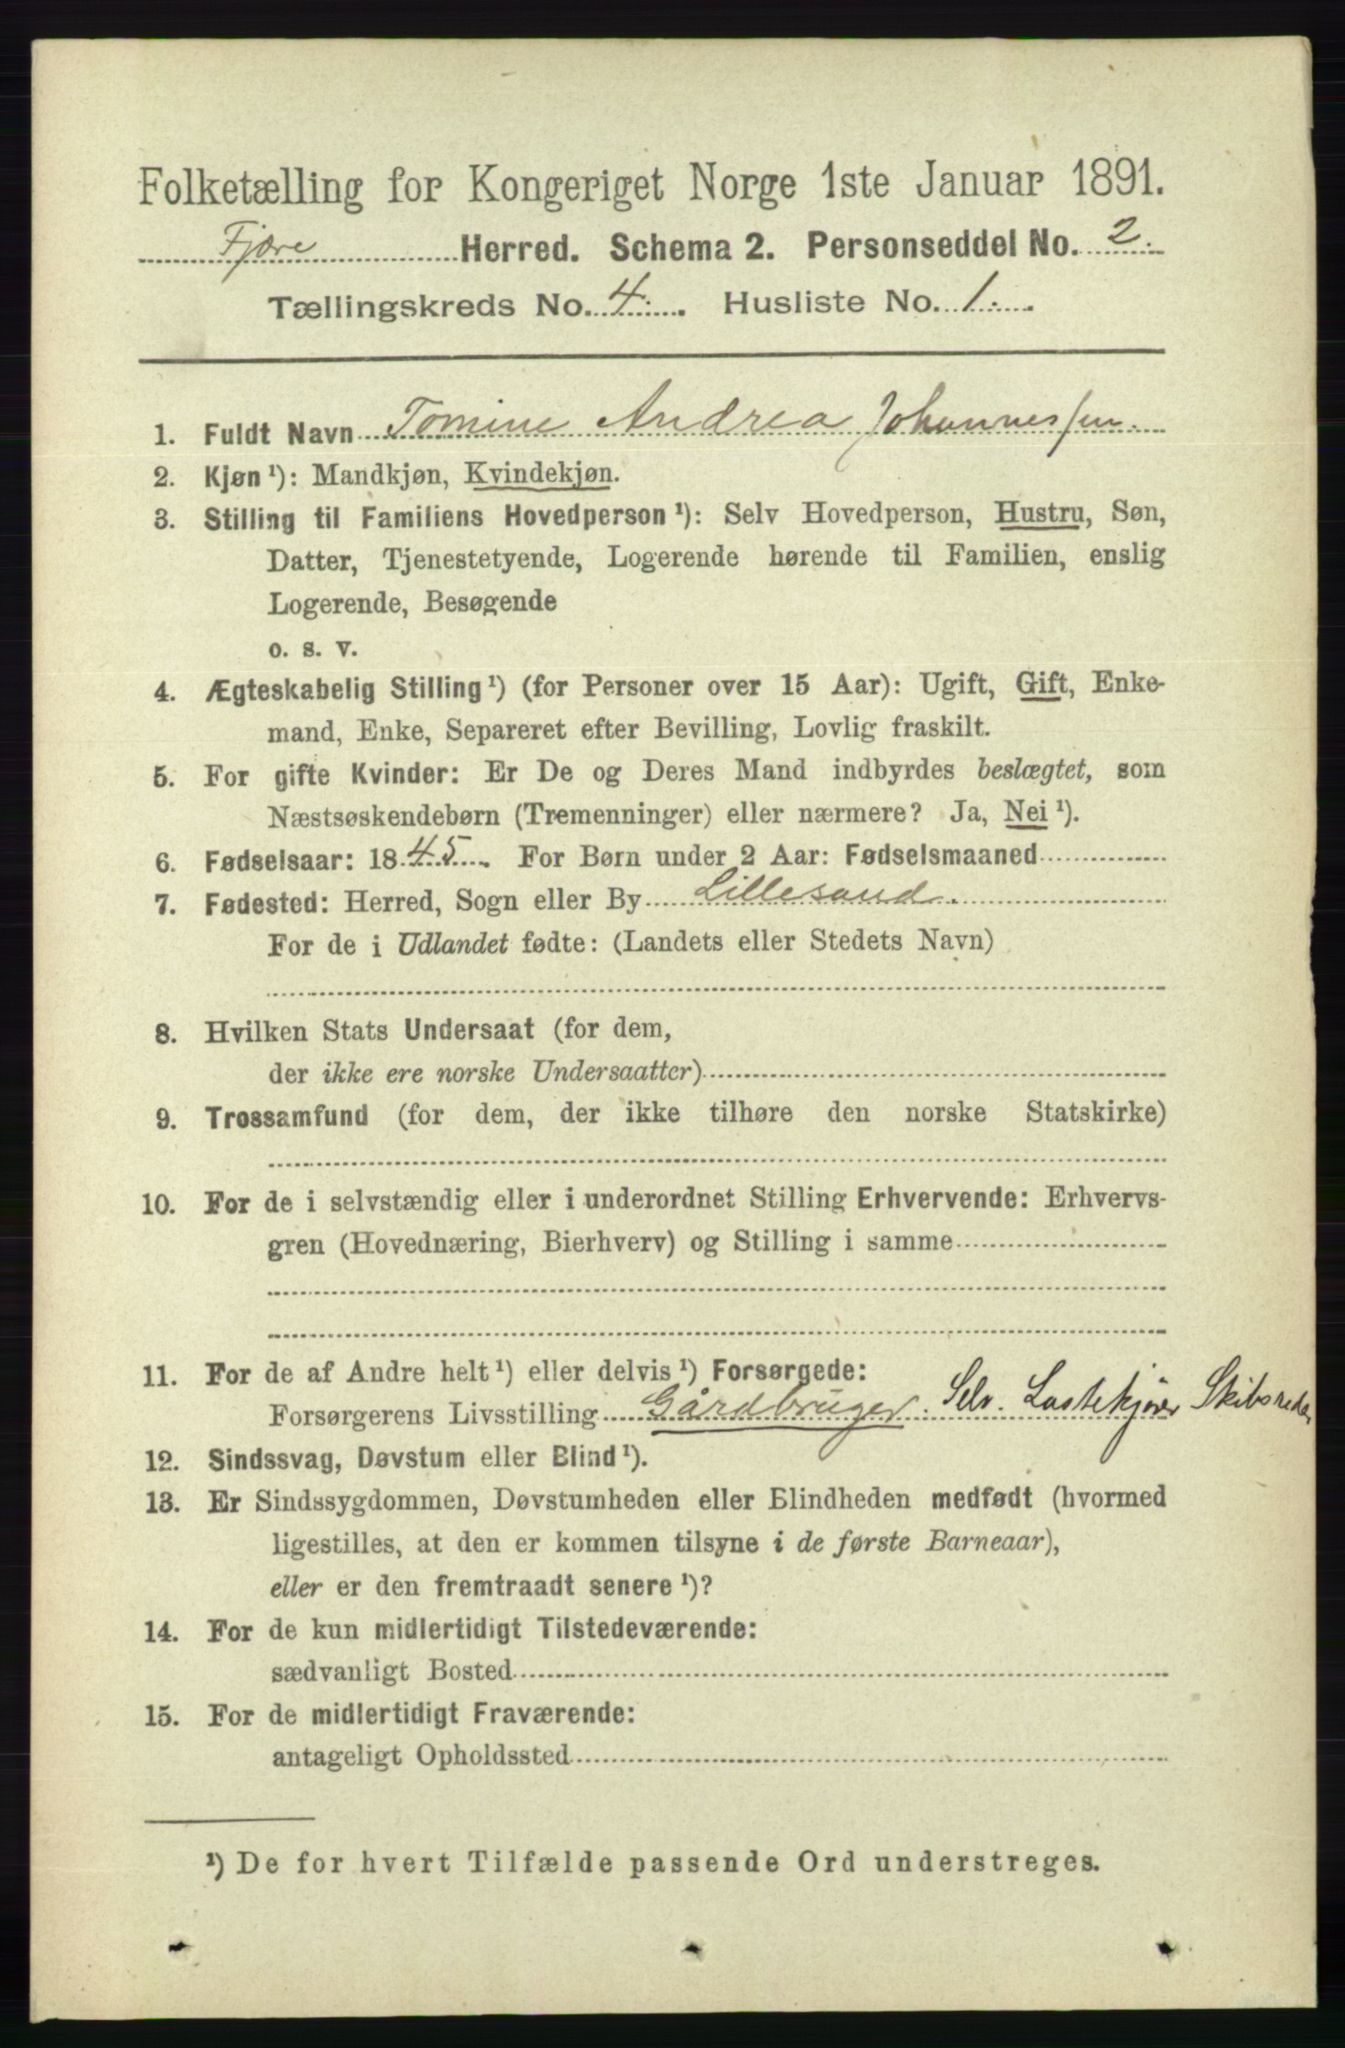 Folketælling for Kongeriget Norge 1ste Januar 1891.
Fjære Herred. Schema 2. Personseddel No. 2.
Tællingskreds No. 4. Husliste No. 1.
1. Fuldt Navn Tomine Andrea Johannessen.
2. Kjøn¹): Mandkjøn, Kvindekjøn.
3. Stilling til Familiens Hovedperson¹): Selv Hovedperson, Hustru, Søn,
Datter, Tjenestetyende, Logerende hørende til Familien, enslig
Logerende, Besøgende
o. s. v.
4. Ægteskabelig Stilling¹) (for Personer over 15 Aar): Ugift, Gift, Enke-
mand, Enke, Separeret efter Bevilling, Lovlig fraskilt.
5. For gifte Kvinder: Er De og Deres Mand indbyrdes beslægtet, som
Næstsøskendebørn (Tremenninger) eller nærmere? Ja, Nei¹).
6. Fødselsaar: 1845. For Børn under 2 Aar: Fødselsmaaned
7. Fødested: Herred, Sogn eller By Lillesand.
For de i Udlandet fødte: (Landets eller Stedets Navn)
8. Hvilken Stats Undersaat (for dem,
der ikke ere norske Undersaatter)
9. Trossamfund (for dem, der ikke tilhøre den norske Statskirke)
10. For de i selvstændig eller i underordnet Stilling Erhvervende: Erhvervs-
gren (Hovednæring, Bierhverv) og Stilling i samme
11. For de af Andre helt¹) eller delvis¹) Forsørgede:
Forsørgerens Livsstilling Gårdbruger. Selv. Skibsreder
12. Sindssvag, Døvstum eller Blind¹).
13. Er Sindssygdommen, Døvstumheden eller Blindheden medfødt (hvormed
ligestilles, at den er kommen tilsyne i de første Barneaar),
eller er den fremtraadt senere¹)?
14. For de kun midlertidigt Tilstedeværende:
sædvanligt Bosted
15. For de midlertidigt Fraværende:
antageligt Opholdssted
¹) De for hvert Tilfælde passende Ord understreges.